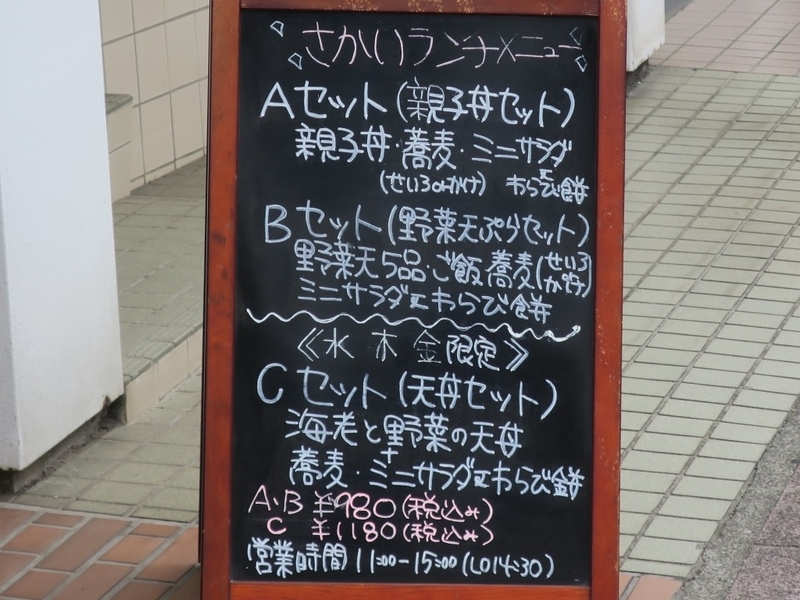 さかいランチメニュー
Aセット(親子丼セット)
親子丼・蕎麦・ミニサラダ
(せいろorかけ) or わらび餅
Bセット(野菜天ぷらセット)
野菜天5品・ご飯 蕎麦(せいろ
かけ)
ミニサラダorわらび餅
≪水 木 金限定≫
Cセット(天丼セット)
海老と野菜の天丼
+
蕎麦・ミニサラダorわらび餅
A・B ¥980(税込み)
C ¥1180(税込み)
営業時間 11:00-15:00(LO14:30)